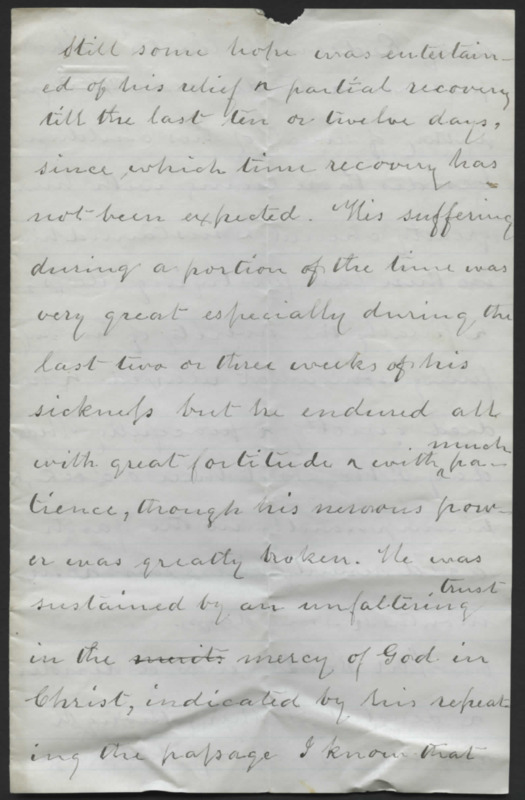 Still some hope was entertain-
ed of his relief & partial recovery
till the last ten or twelve days,
since which time recovery has
not been expected. His suffering
during a portion of the time was
very great especially during the
last two or three weeks of his
sickness but he endured all
with great fortitude & with much pa-
tience, though his nervous pow-
er was greatly broken. He was
sustained by an unfaltering trust
in the merits mercy of God in
Christ, indicated by his repeat-
ing the passage I know that